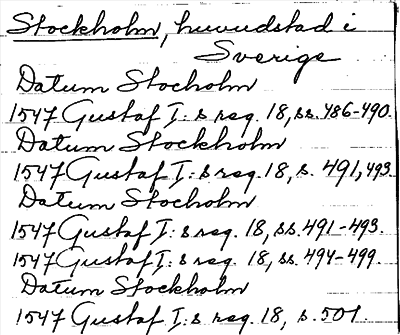 Stockholm, huvudstad i
Sverige
Datum Stocholm
1547 Gustaf I:s reg. 18, ss. 486-490.
Datum Stockholm
1547 Gustaf I:s reg. 18, s. 491, 493.
Datum Stocholm
1547 Gustaf I:s reg. 18, ss. 491-493.
1547 Gustaf I:s reg. 18, ss. 494-499.
Datum Stocholm
1547 Gustaf I:s reg. 18, s. 501.